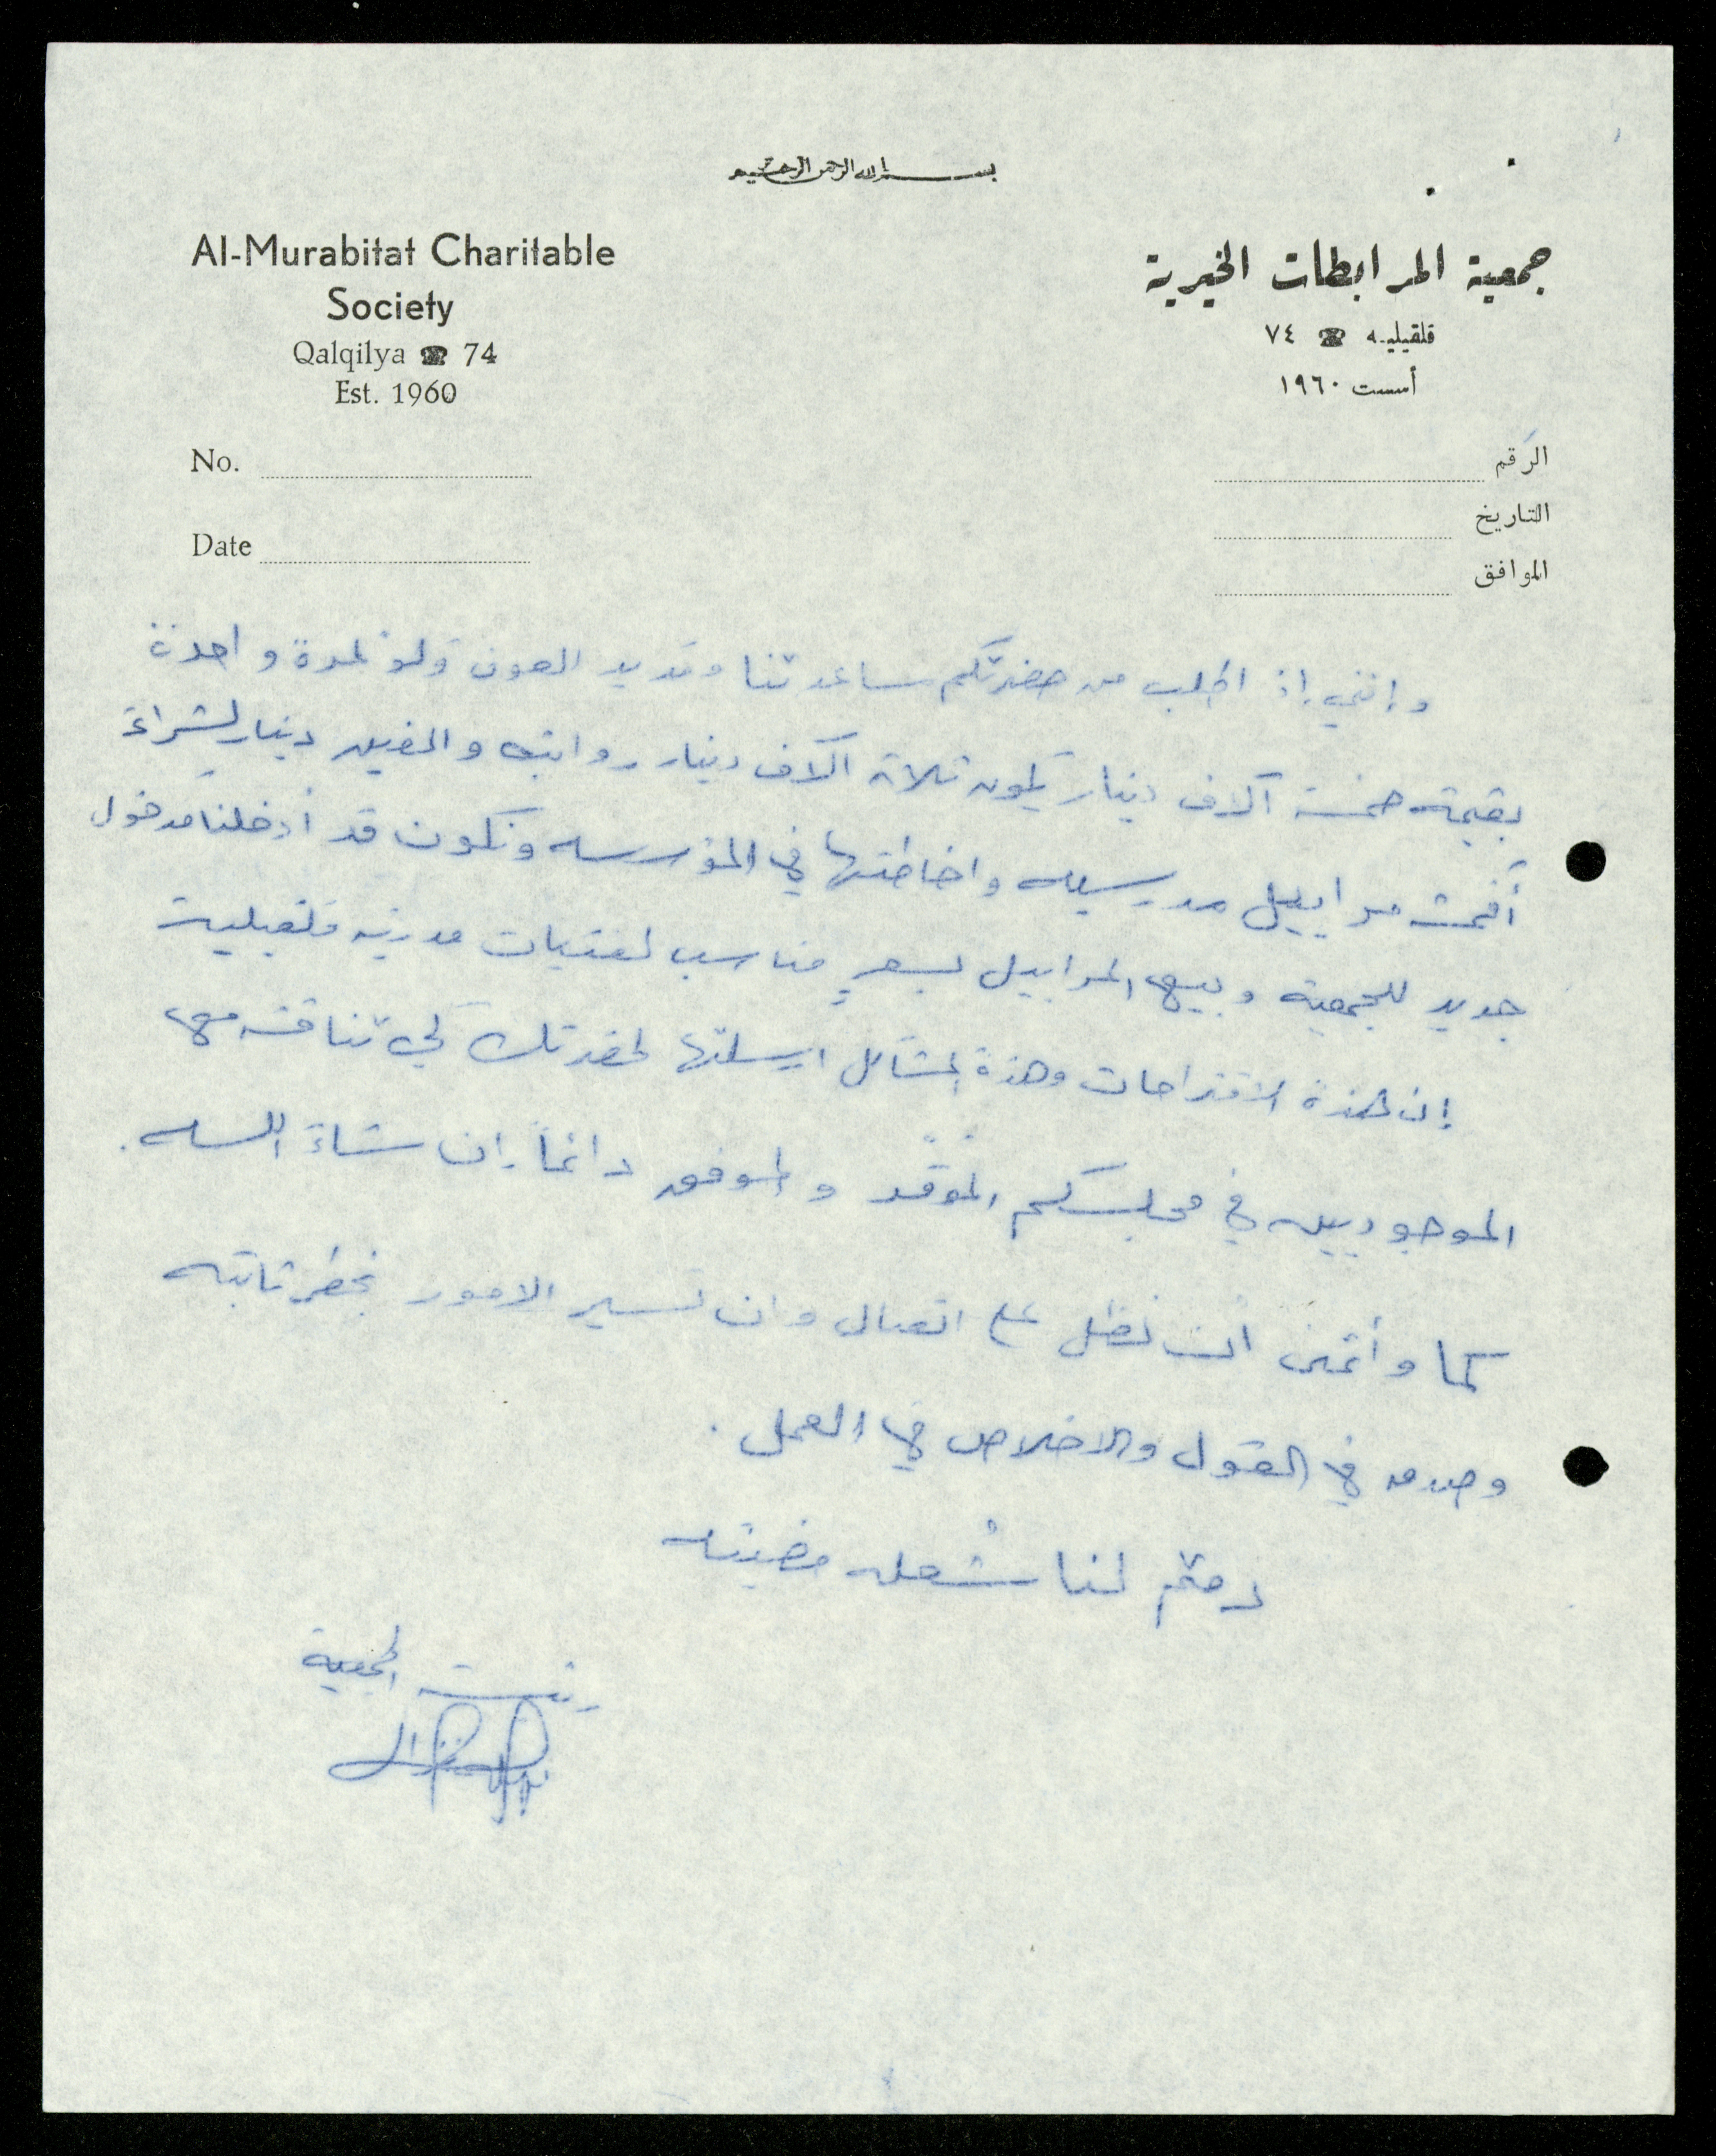 بسم الله الرحمن الرحيم
Al-Murabitat Charitable
Society
Qalqilya ☎ 74
Est. 1960
جمعية المرابطات الخيرية
قلقيليه ☎ ٧٤
أسست ١٩٦٠
No.
Date
الرقم
التاريخ
الموافق
وإنني إذ اطلب من حضرتكم مساعدتنا ومد يد العون ولو لمرة واحدة
بقيمة خمسة آلاف دينار تكون ثلاثة آلاف دينار رواتب والفين دينار لشراء
أقمشة مراييل مدرسيه وإخاطتها في المؤسسه ونكون قد أدخلنا مدخول
جديد للجمعية وبيع المراييل بسعرٍ مناسب لفتيات مدينة قلقيلية
إن هذه الاقتراحات وهذه المشاكل ارسلتها لحضرتك لكي تناقش مع
الموجودين في مجلسكم الموقر والموفق دائماً إن شاء الله.
كما وأتمنى أن نظل على اتصال وان تسير الامور بخطى ثابته
وصدق في القول والاخلاص في العمل.
دمتم لنا شعله مضيئه
رئيسة الجمعية